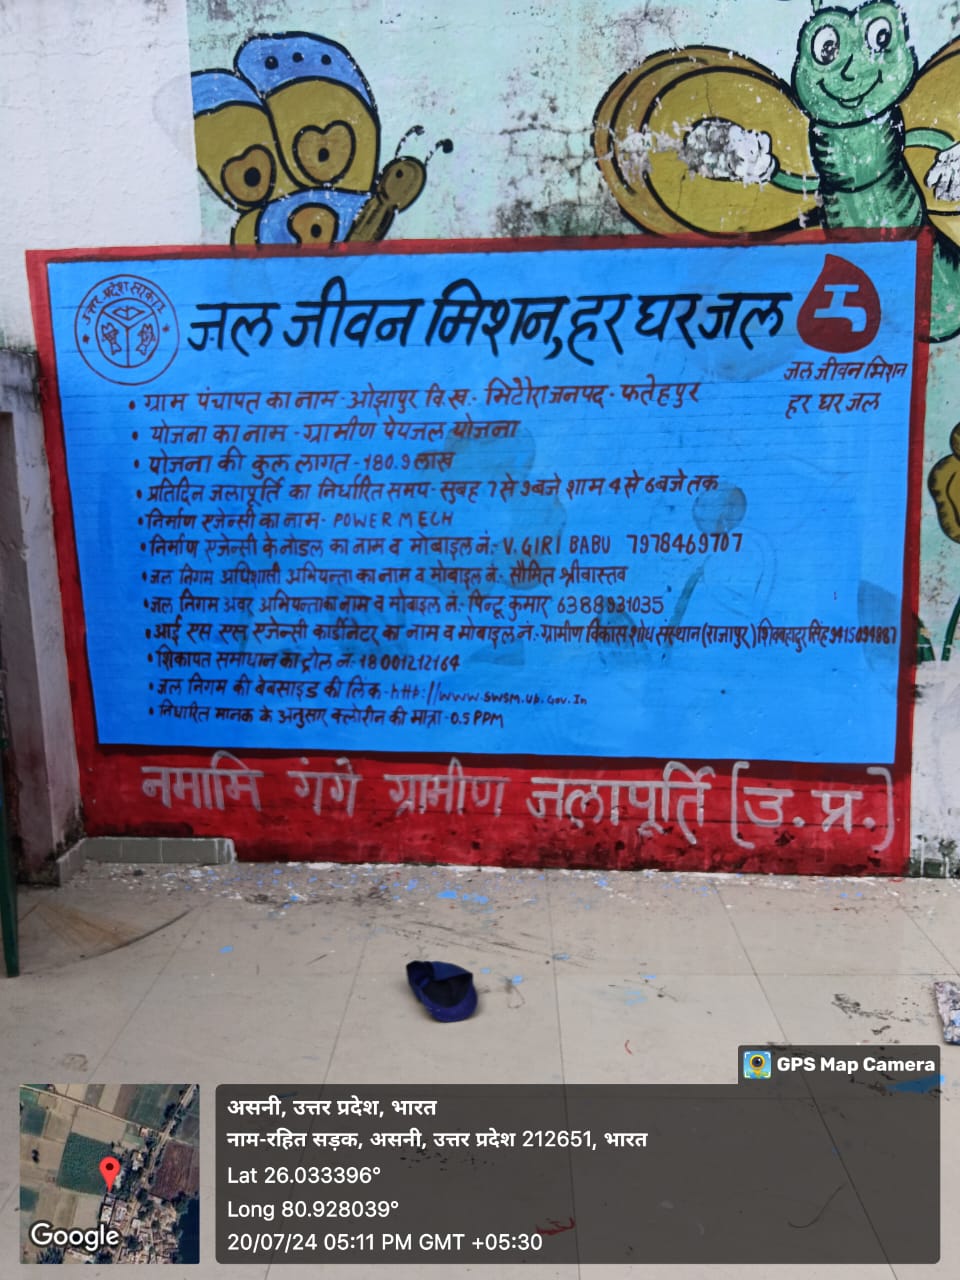 उत्तर प्रदेश सरकार
जल जीवन मिशन, हर घर जल
जल जीवन मिशन
हर घर जल
• ग्राम पंचापत का नाम - ओझापुर वि.ख.- भिटौरा जनपद - फतेहपुर
• योजना का नाम - ग्रामीण पेयजल योजना
• योजना की कुल लागत - 180.9 लाख
• प्रतिदिन जलापूर्ति का निर्धारित समय - सुबह 7 से 9 बजे शाम 4 से 6 बजे तक
• निर्माण एजेन्सी का नाम - POWER MECH
• निर्माण एजेन्सी के नोडल का नाम व मोबाइल नं.- V. GIRI BABU 7978469707
• जल निगम अधिशासी अभियन्ता का नाम व मोबाइल नं - सौमित श्रीवास्तव
• जल निगम अवर अभियन्ता का नाम व मोबाइल नं.- पिन्टू कुमार 6388931035
• आई एस एस एजेन्सी कार्डीनेटर का नाम व मोबाइल नं.- ग्रामीण विकास शोध संस्थान (राजापुर) शिवबहादुर सिंह
• शिकायत समाधान का ट्रोल नं.- 18001212164
• जल निगम की बेबसाइड की लिंक - http://www.swsm.up.gov.In
• निर्धारित मानक के अनुसार क्लोरीन की मात्रा - 0.5 PPM
नमामि गंगे ग्रामीण जलापूर्ति (उ. प्र.)
GPS Map Camera
असनी, उत्तर प्रदेश, भारत
नाम-रहित सड़क, असनी, उत्तर प्रदेश 212651, भारत
Lat 26.033396°
Long 80.928039°
20/07/24 05:11 PM GMT +05:30
Google